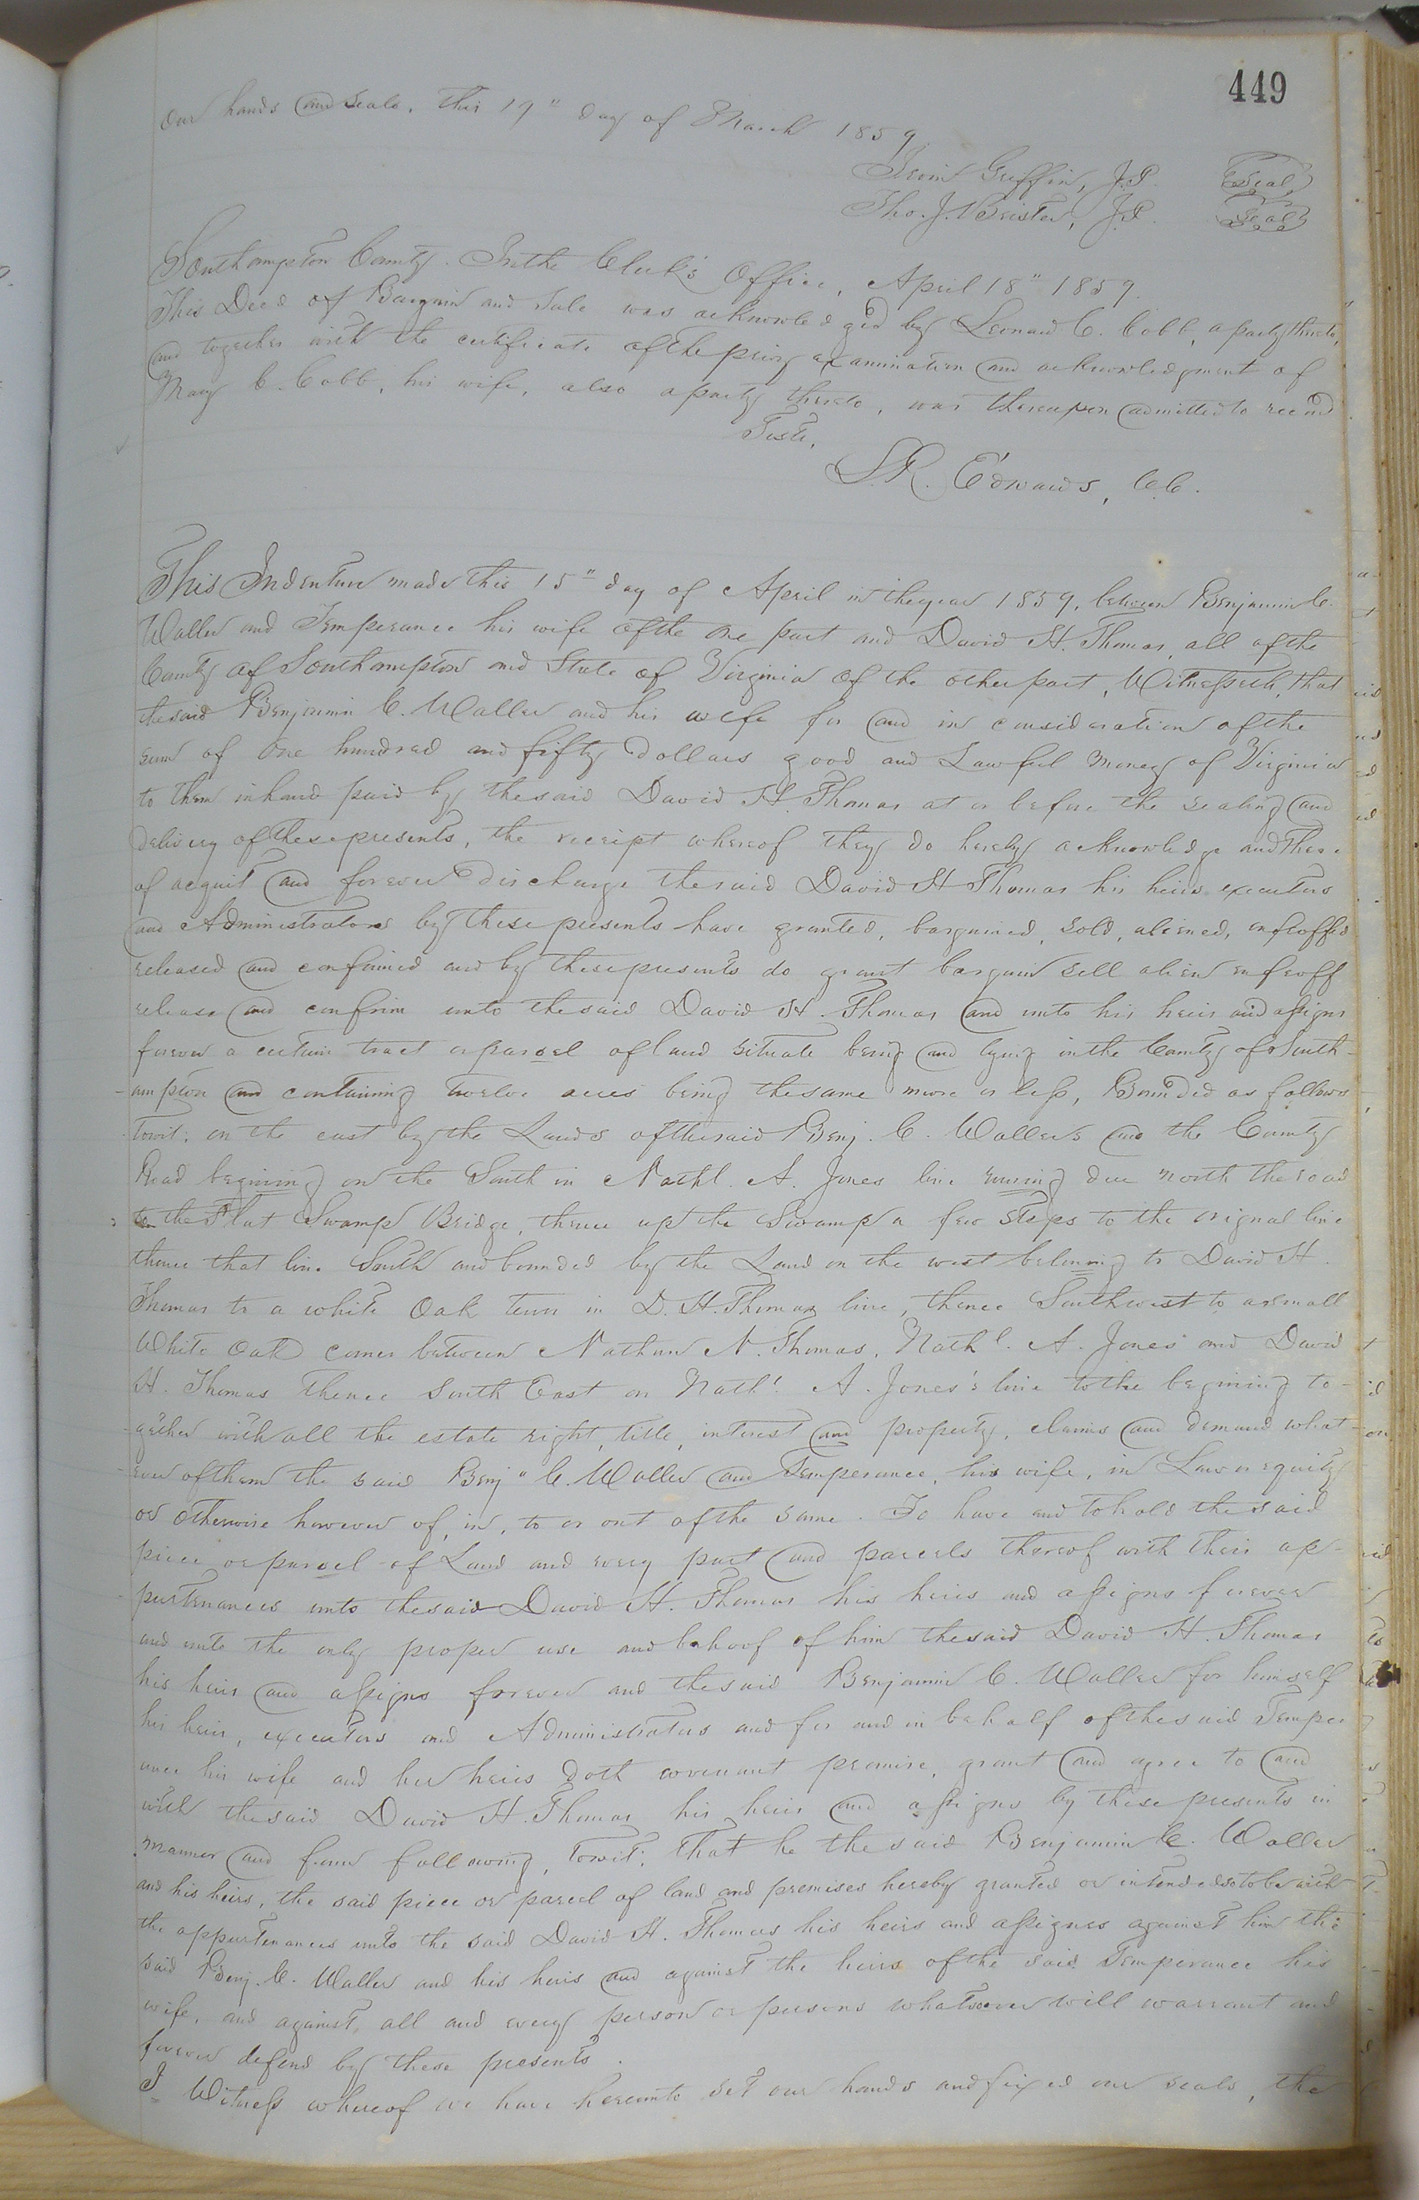 449
Our hands and seals, this 19" day of March 1859
Irvin Griffin, J.P. Seal
Tho. J. Brister, J.P. Seal
Southampton County. In the Clerk's Office, April 18" 1859.
This Deed of Bargain and Sale was acknowledged by Leonard C. Cobb, a party thereto,
and together with the certificate of the privy examination and acknowledgment of
Mary C. Cobb, his wife, also a party thereto, was thereupon admitted to record
Teste,
L.R. Edwards, C.C.
This Indenture made this 15" day of April in the year 1859, between Benjamin C.
Waller and Temperance his wife of the one part and David H. Thomas, all of the
County of Southampton and State of Virginia of the other part, Witnesseth, that
the said Benjamin C. Waller and his wife for and in consideration of the
sum of One hundred and fifty Dollars good and Lawful money of Virginia
to them in hand paid by the said David H. Thomas at or before the sealing and
delivery of these presents, the receipt whereof they do hereby acknowledge and there
of acquit and forever discharge the said David H Thomas his heirs executors
and Administrators by these presents have granted, bargained, sold, aliened, enfeoffed
released and confirmed and by these presents do grant bargain sell alien enfeoff
release and confirm unto the said David H. Thomas and unto his heirs and assigns
forever a certain tract or parcel of land situate being and lying in the County of South-
ampton and containing twelve acres being the same more or less, Bounded as follows,
towit; on the east by the Lands of the said Benj. C. Wallers and the County
Road begining on the South in Nathl. A. Jones line runing due north the road
to the Flat Swamp Bridge, thence up the Swamp a few steps to the orignal line
thence that line South and bounded by the Land on the west belonging to David H.
Thomas to a white Oak turn in D. H. Thomas line, thence Southwest to a small
White Oak corner between Nathan N. Thomas, Nathl. A. Jones and David
H. Thomas thence South East on Nathl. A. Jones's line to the begining to-
gether with all the estate right, title, interest and property, claims and demand what-
ever of them the said Benj" C. Waller and Temperance, his wife, in Law or equity
or otherwise however of, in, to or out of the same. To have and to hold the said
piece or parcel of Land and every part and parcels thereof with their ap-
purtenances unto the said David H. Thomas his heirs and assigns forever
and unto the only proper use and behoof of him the said David H. Thomas
his heirs and assigns forever and the said Benjamin C. Waller for himself
his heirs, executors and Administrators and for and in behalf of the said Temper
ance his wife and her heirs doth covenant promise, grant and agree to and
with the said David H. Thomas his heirs and assigns by these presents in
manner and form following, towit; that he the said Benjamin C. Waller
and his heirs, the said piece or parcel of land and premises hereby granted or intended so to be with
the appurtenances unto the said David H. Thomas his heirs and assignes against him the
said Benj. C. Waller and his heirs and against the heirs of the said Temperance his
wife, and against, all and every person or persons whatsoever will warrant and
forever defend by these presents.
I Witness whereof we have hereunto set our hands and fixed our seals, the